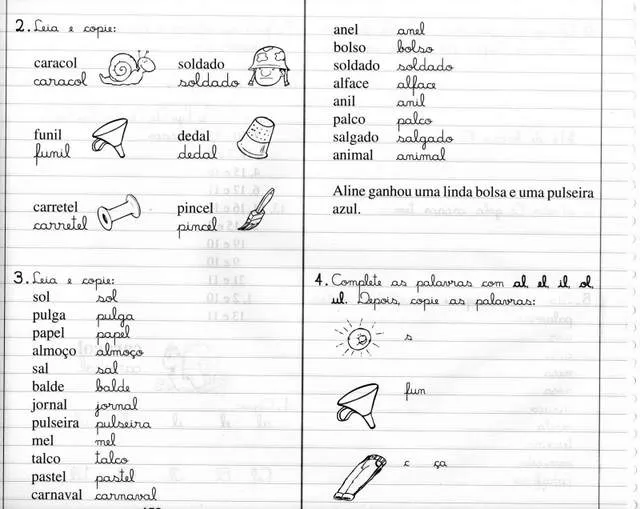 2. Leia e copie:
caracol soldado
caracol soldado
funil dedal
funil dedal
carretel pincel
carretel pincel
3. Leia e copie:
sol sol
pulga pulga
papel papel
almoço almoço
sal sal
balde balde
jornal jornal
pulseira pulseira
mel mel
talco talco
pastel pastel
carnaval carnaval
anel anel
bolso bolso
soldado soldado
alface alface
anil anil
palco palco
salgado salgado
animal animal
Aline ganhou uma linda bolsa e uma pulseira
azul.
4. Complete as palavras com al, el, il, ol,
ul. Depois, copie as palavras:
s
fun
c ça